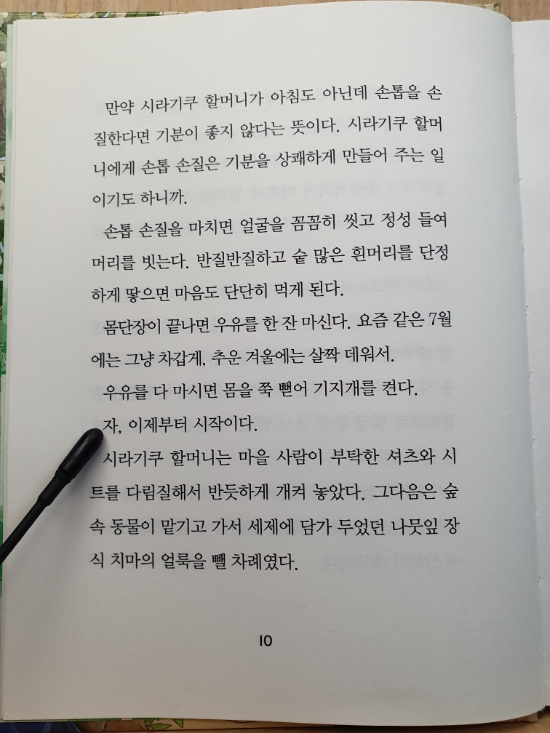 만약 시라기쿠 할머니가 아침도 아닌데 손톱을 손
질한다면 기분이 좋지 않다는 뜻이다. 시라기쿠 할머
니에게 손톱 손질은 기분을 상쾌하게 만들어 주는 일
이기도 하니까.
손톱 손질을 마치면 얼굴을 꼼꼼히 씻고 정성 들여
머리를 빗는다. 반질반질하고 숱 많은 흰머리를 단정
하게 땋으면 마음도 단단히 먹게 된다.
몸단장이 끝나면 우유를 한 잔 마신다. 요즘 같은 7월
에는 그냥 차갑게, 추운 겨울에는 살짝 데워서.
우유를 다 마시면 몸을 쭉 뻗어 기지개를 켠다.
자, 이제부터 시작이다.
시라기쿠 할머니는 마을 사람이 부탁한 셔츠와 시
트를 다림질해서 반듯하게 개켜 놓았다. 그다음은 숲
속 동물이 맡기고 가서 세제에 담가 두었던 나뭇잎 장
식 치마의 얼룩을 뺄 차례였다.
10